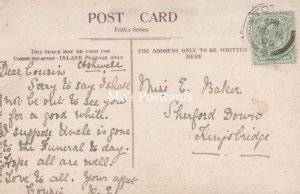 POST CARD
Frith's Series
THIS SPACE MAY BE USED FOR
COMMUNICATION—INLAND POSTAGE ONLY
THE ADDRESS ONLY TO BE WRITTEN
HERE.
Ashwell
Dear Cousin
Sorry to say I shall
not be out to see you
for a good while.
I suppose Uncle is gone
to the Funeral to day.
Hope all are well.
Love to all. Your affect
Cousin
Miss E. Baker
Sherford Down
Kingsbridge
Mo's Postcards